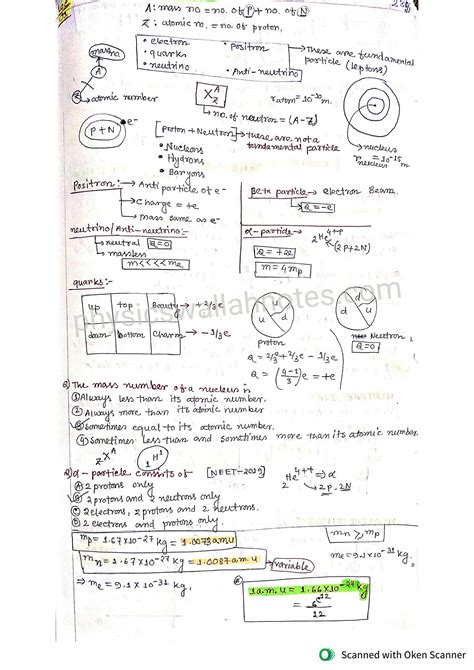 A: mass no = no. of P + no. of N
Z: atomic no. = no. of proton,
• electron
• quarks
• neutrino
• Positron
• Anti-neutrino
these are fundamental
particle (leptons)
mass no.
A
Z → atomic number
X A Z
no. of neutron = (A-Z)
r atom = 10⁻¹⁰ m.
nucleus
r nucleus = 10⁻¹⁵ m
P+N
e⁻
[Proton + Neutron] → these are not a
fundamental particle
• Nucleons
• Hydrons
• Baryons
Positron:→ Anti particle of e⁻
→ charge = +e
→ mass same as e⁻
Beta particle → electron Beam.
Q = -e
neutrino/Anti-neutrino:→
→ neutral Q=0
→ massless
m<<<<me
α-particle →
₂He⁴⁺⁺
(2P+2N)
Q = +2e
m = 4mp
quarks:→
up top Beauty → +2/3e
down bottom Charm → -1/3e
u u d
d d u
proton
Neutron
Q=0
Q = 2/3e + 2/3e - 1/3e
Q = (4-1/3)e = +e
physicswallahnotes.com
Q) The mass number of a nucleus is
① Always less than its atomic number.
② Always more than its atomic number
③ Sometimes equal to its atomic number.
④ Sometimes less than and sometimes more than its atomic number.
zXᴬ
₁H¹
Q) α-particle consists of [NEET-2019]
₂He⁴⁺⁺ ⇒ α
→ 2P, 2N
A 2 protons only
B 2 protons and 2 neutrons only
C 2 electrons, 2 protons and 2 neutrons.
D 2 electrons and protons only.
mp = 1.67×10⁻²⁷ kg = 1.0073 a.m.u
mn = 1.67×10⁻²⁷ kg = 1.0087 a.m.u
variable
mn ⩾ mp
me = 9.1×10⁻³¹ kg
⇒ me = 9.1×10⁻³¹ kg,
1 a.m.u = 1.66×10⁻²⁷ kg
= 6C¹²/12
Scanned with Oken Scanner